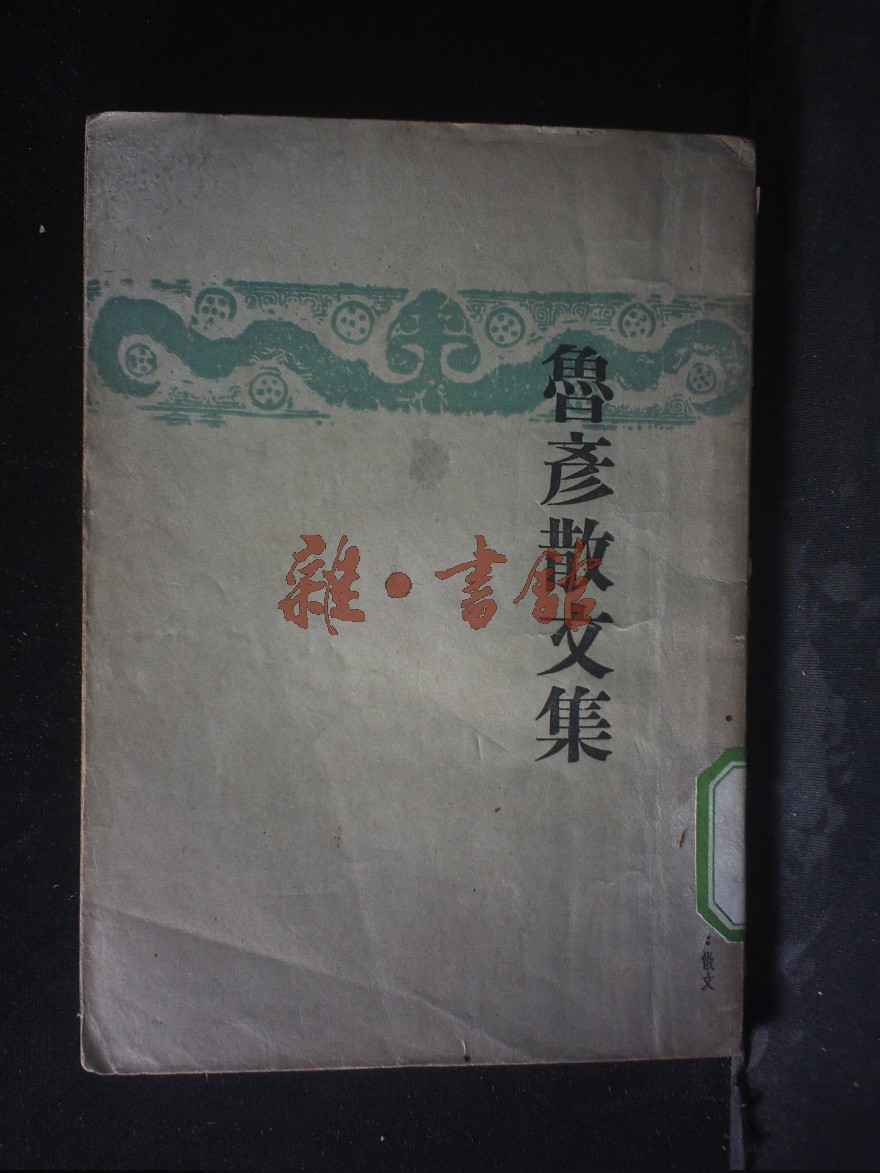 魯彥散文集
雜·書館
：散文